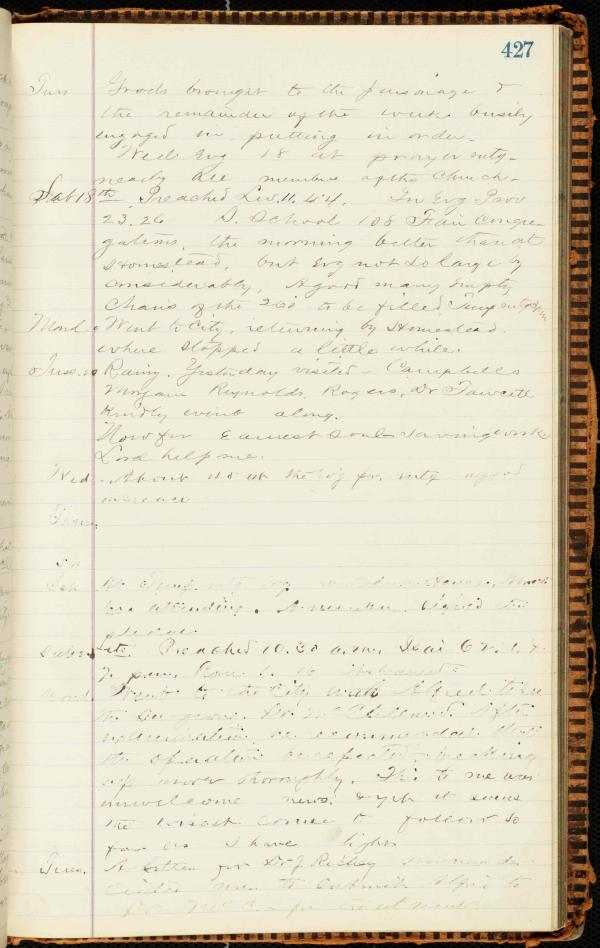 427
Tues Goods brought to the parsonage &
the remainder of the week busily
engaged in putting in order.
Wed Evg 18 at prayer mtg-
nearly all members of the Church-
Sab 18th Preached Lev. 11, 44. In Evg Prov
23,26 S. School 108 Fair Congre-
gations, the morning better than at
Homestead, but Evg not so large by
considerably, A good many empty
Chairs of the to be filled,
Mond. Went to City, returning by Homestead
where stopped a little while.
Tues. Rainy. Yesterday visited - Campbells
Morgan Reynolds, Rogers, Dr Fawcett
kindly went along.
Now for Earnest Soul-saving work
Lord help me.
Wed. About at the pr. mtg a good
increase
Thurs.
Fri
Sab At Temp. mtg evg
attending. A number signed the
pledge.
Preached 10.30 a.m. Isai 62. 1. &
7 p.m. Rom 1. 16
Mond. Went to the City with Alfred to see
the Surgeon. Dr McClelland. After
examination he recommended that
the operation be repeated - breaking
up more thoroughly. This to me was
unwelcome news, & yet it seems
the wisest course to follow so
far as I have light
Tues. A letter fr Dr J
me to submit to
Dr McC. - for treatment.